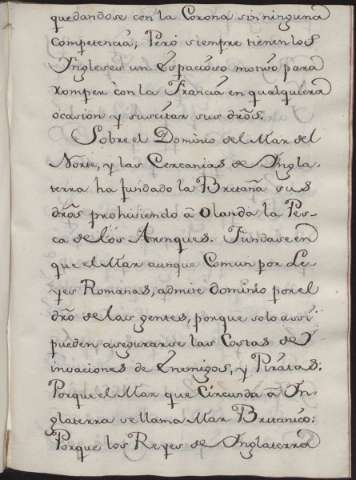 quedandose con la Corona sin ninguna
competencia; Pero siempre tienen los
Ingleses un Espacioso motivo para
romper con la Francia en qualquiera
ocasion y suscitar sus dr̃os.
Sobre el Dominio del Mar del
Norte, y las Cercanias de Ingla-
terra ha fundado la Bretaña sus
dr̃os prohiuiendo â Olanda la Pes-
ca de los Arenques. Fundase en
que el Mar aunque Comun por Le-
yes Romanas, admite dominio por el
dr̃o de las gentes, porque solo assi
pueden asegurarse las Costas de
invaciones de Enemigos, y Piratas:
Porque el Mar que Circunda â In-
glaterra se llama Mar Britanico:
Porque los Reyes de Inglaterra